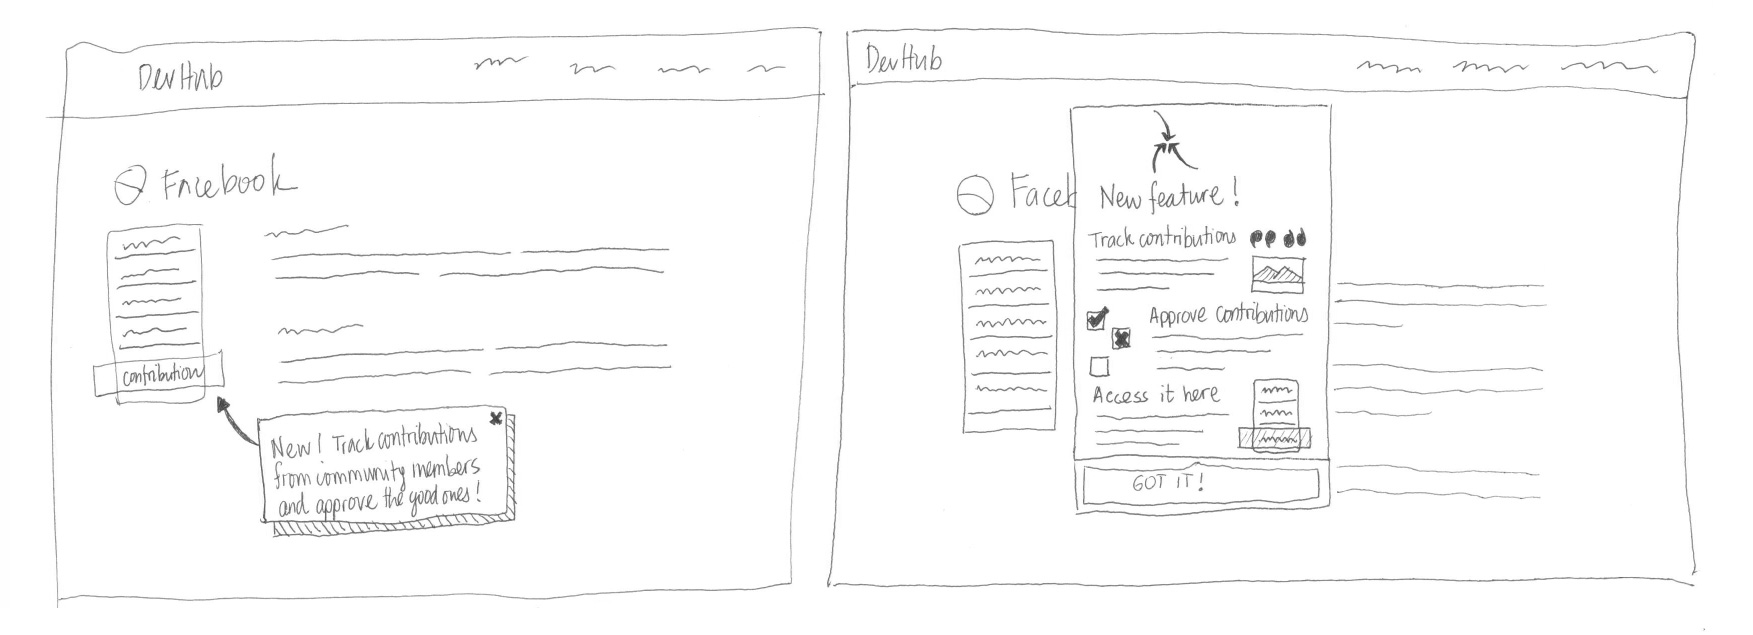 DevHub
Facebook
contribution
New! Track contributions
from community members
and approve the good ones!
DevHub
Faceb
New feature!
Track contributions
Approve contributions
Access it here
GOT IT!